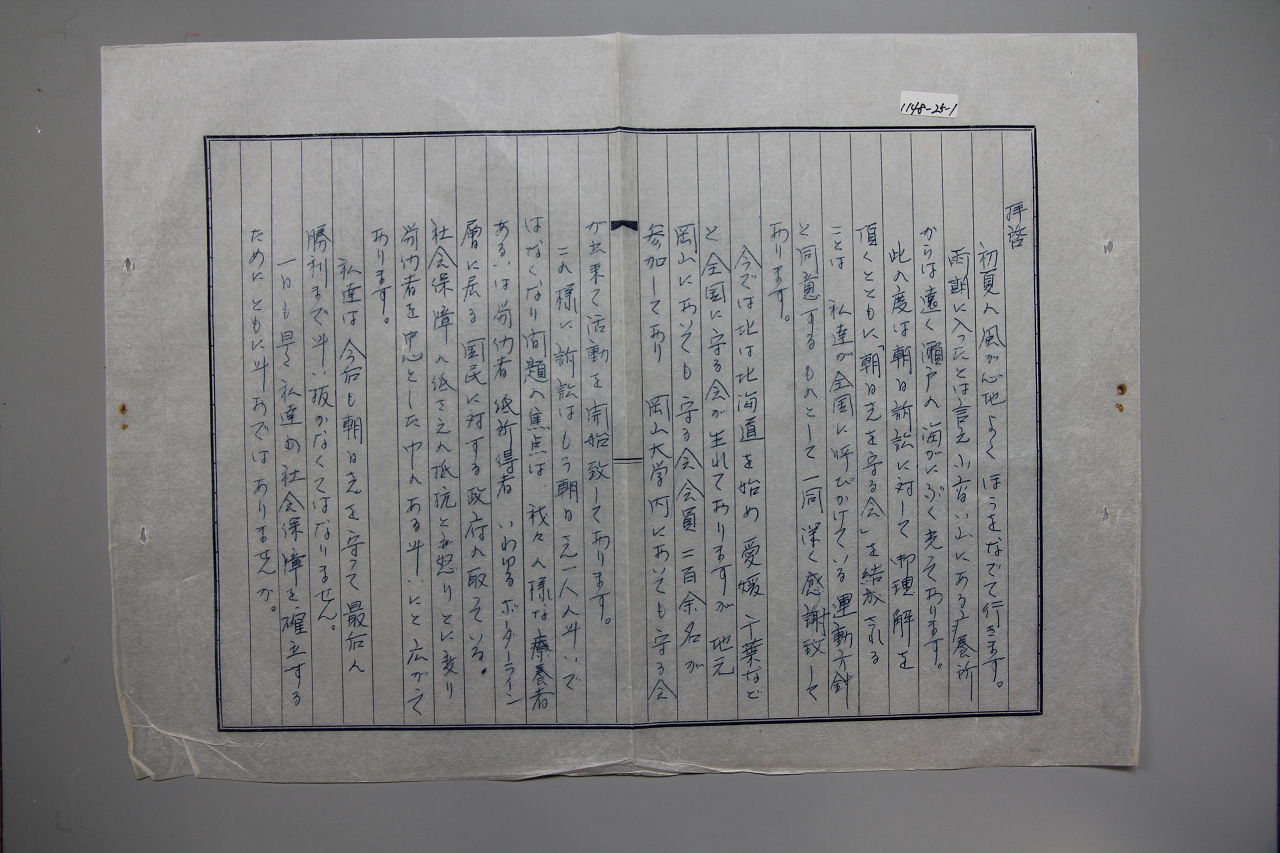 1148-25-1
拝啓
初夏の風が心地よくほうをなでて行きます。
雨期に入ったとは言え小高い山にある療養所
からは遠く瀬戸の海がにぶく光っております。
此の度は朝日訴訟に対して御理解を
頂くとともに「朝日さんを守る会」を結成される
ことは 私達が全国に呼びかけている運動方針
と同意するものとして一同深く感謝致して
おります。
今では北は北海道を始め 愛媛 千葉など
と全国に守る会が生れておりますが 地元
岡山においても守る会会員二百余名が
参加しており 岡山大学内においても守る会
が出来て活動を開始致しております。
この様に訴訟はもう朝日さん一人の斗いで
はなくなり問題の焦点は 我々の様な療養者
あるいは労仂者 低所得者 いわゆるボーダーライン
層に居る国民に対する政府の取っている。
社会保障の低さえの抵抗と怒りとに変り
労仂者を中心とした中のある斗いにと広がって
おります。
私達は今后も朝日さんを守って最后の
勝利まで斗い抜かなくてはなりません。
一日も早く私達の社会保障を確立する
ためにともに斗おうではありませんか。